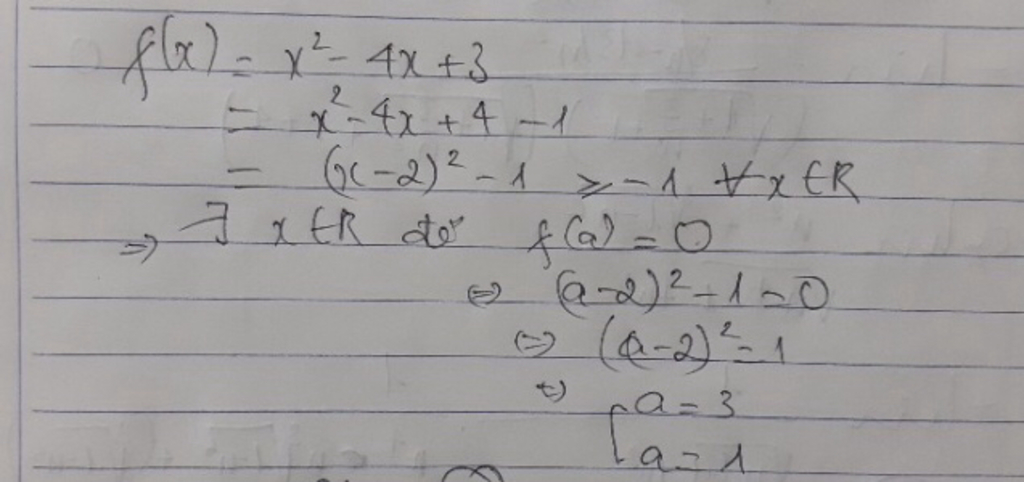 f(x) = x² - 4x + 3
= x² - 4x + 4 - 1
= (x - 2)² - 1 ≥ -1 ∀x ∈ R
=> ∃ x ∈ R để f(a) = 0
<=> (a - 2)² - 1 = 0
<=> (a - 2)² = 1
<=> [ a = 3
a = 1